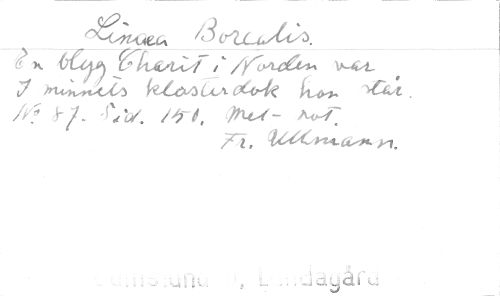 Linæa Borealis.
En blyg Charit i Norden var
I minnets klosterdok hon står.
No 87. Sid. 150. Mel- not.
Fr. Ullmann.